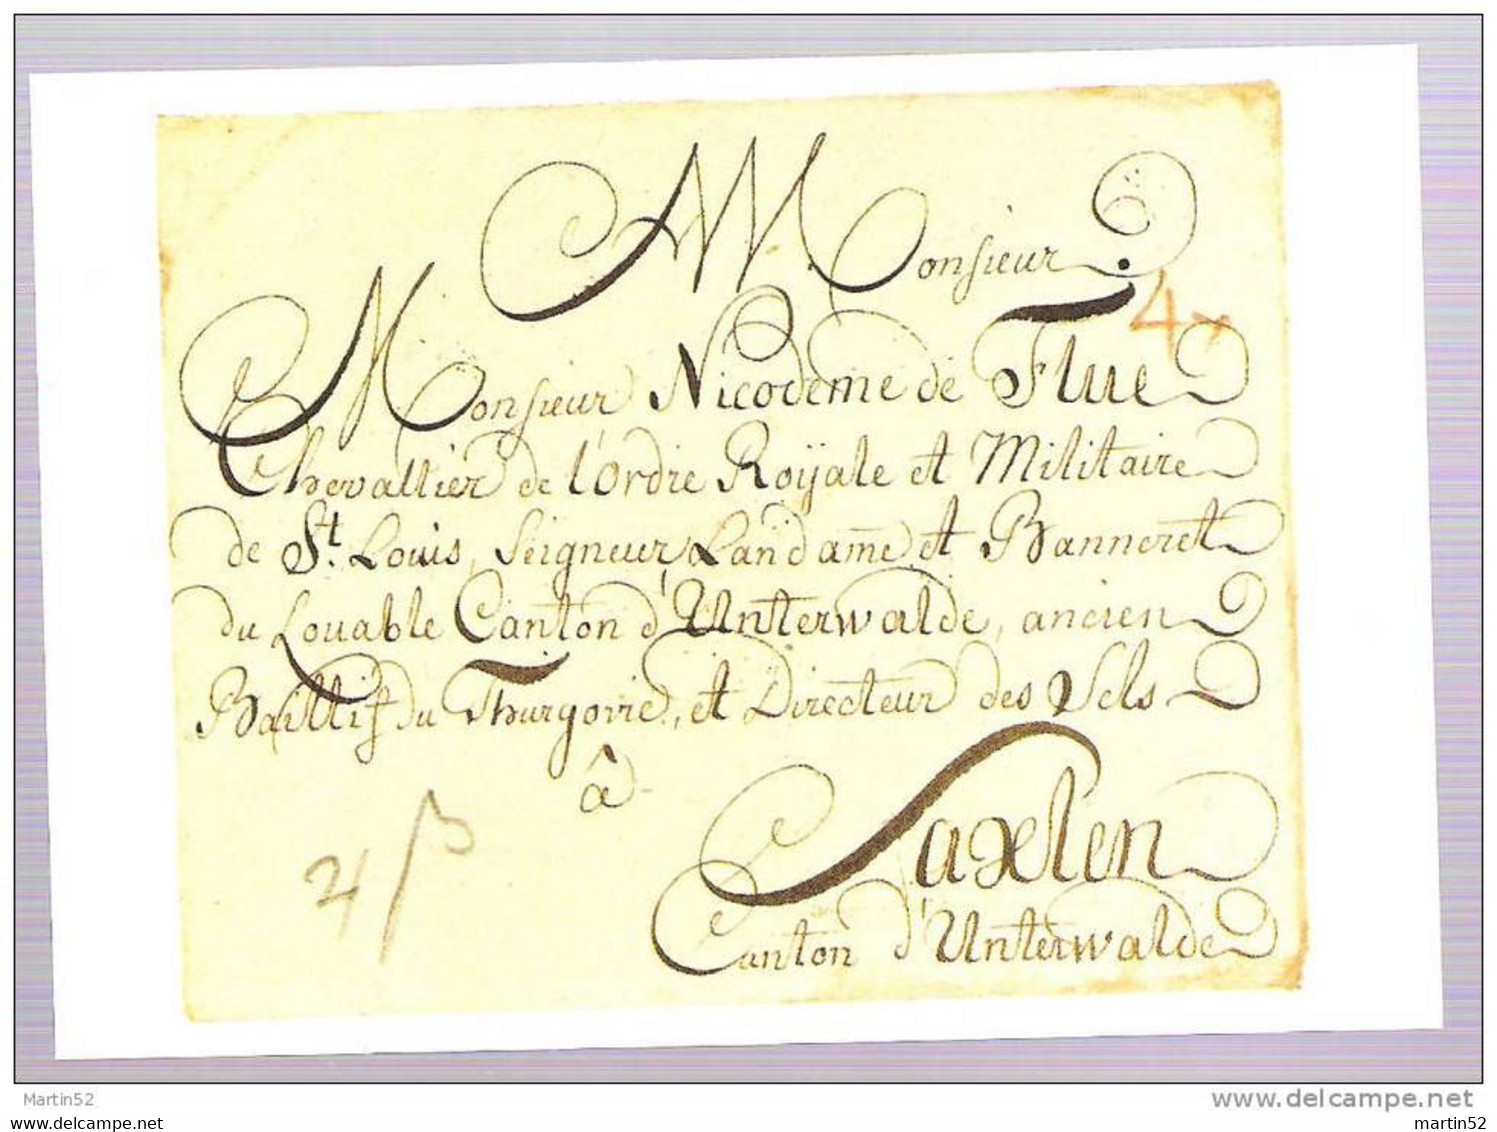 A Monsieur
4x
Monsieur Nicodeme de Flue
Chevallier de l'Ordre Royale et Militaire
de St. Louis, Seigneur Landame et Banneret
du Louable Canton d'Unterwalde, ancien
Baillif du Thurgovie, et Directeur des Sels
â
Saxlen
Canton d'Unterwalde
Martin52
www.delcampe.net
www.delcampe.net
martin52